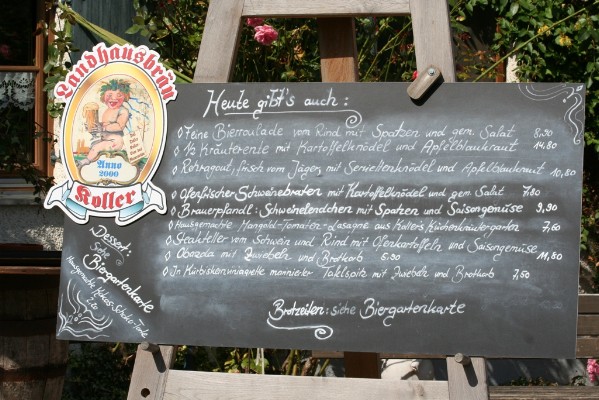 Landhausbräu
Anno
2000
Koller
Heute gibt's auch:
Feine Bierroulade vom Rind mit Spatzen und gem Salat 8,90
½ Kräuterente mit Kartoffelknödel und Apfelblaukraut 14,80
Rehragout, frisch vom Jäger, mit Serviettenknödel und Apfelblaukraut 10,80
Ofenfrischer Schweinebraten mit Kartoffelknödel und gem Salat 7,80
Brauerpfandl: Schweinelendchen mit Spatzen und Saisongemüse 9,90
Hausgemachte Mangold-Tomaten-Lasagne aus Kollers Küchenkräutergarten 7,60
Steakteller vom Schwein und Rind mit Ofenkartoffeln und Saisongemüse 11,80
Obazda mit Zwiebeln und Brotkorb 5,30
In Kürbiskernvinaigrette marinierter Tafelspitz mit Zwiebeln und Brotkorb 7,50
Brotzeiten: siehe Biergartenkarte
Dessert:
siehe
Biergartenkarte
Hausgemachte Kokos-Schoko-Torte
2,20